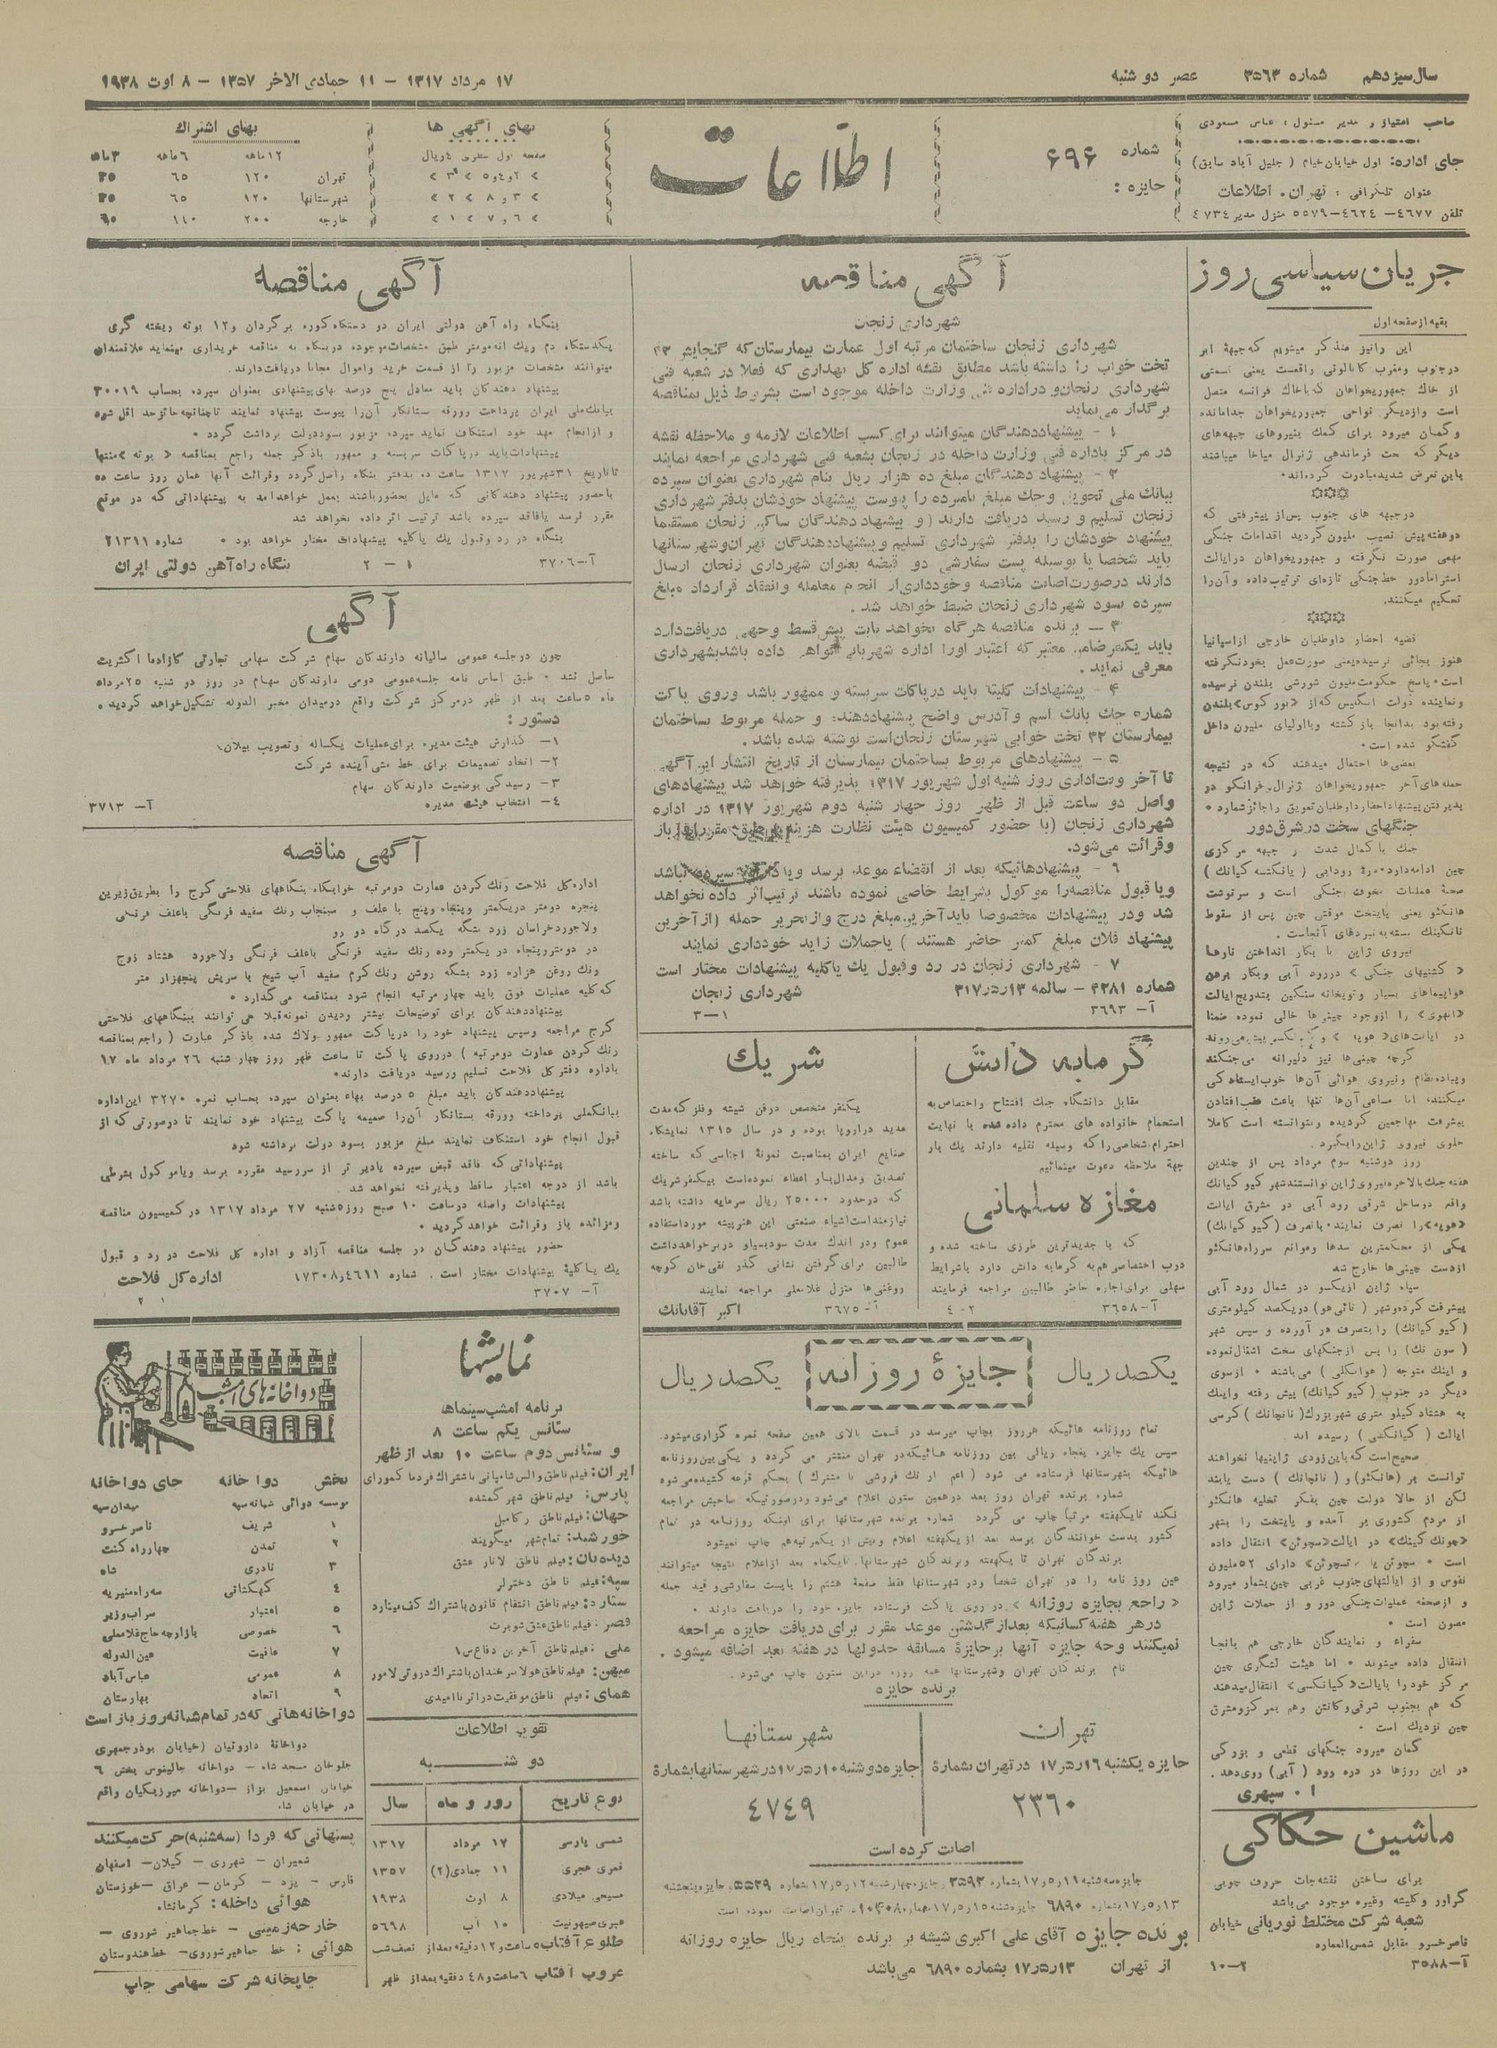 سال سیزدهم شماره ۳۵۶۳ عصر دوشنبه
۱۷ مرداد ۱۳۱۷ - ۱۱ جمادی الاخر ۱۳۵۷ - ۸ اوت ۱۹۳۸
صاحب امتیاز و مدیر مسئول : عباس مسعودی
جای اداره: اول خیابان خیام ( جلیل آباد سابق )
عنوان تلگرافی : تهران. اطلاعات
تلفن ۴۶۷۷- ۴۶۲۴-۵۵۷۹ منزل مدیر ۴۷۳۴
شماره ۶۹۶
جایزه :
اطلاعات
بهای آگهی ها
صفحه اول سطری ۴ ریال
بهای اشتراک
۱۲ماهه ۶ماهه ۳ماهه
تهران ۱۲۰ ۶۵ ۳۵
شهرستانها ۱۲۰ ۶۵ ۳۵
خارجه ۲۰۰ ۱۱۰ ۶۰
جریان سیاسی روز
بقیه از صفحه اول
این را نیز متذکر میشویم که جبهۀ ابر
در جنوب و مغرب کاتالونی واقعست یعنی قسمتی
از خاک جمهوریخواهان که باخاک فرانسه متصل
است و از دیگر نواحی جمهوریخواهان جدا مانده
و گمان میرود برای کمک بنیروهای جبهه‌های
دیگر که تحت فرماندهی ژنرال میاخا میباشند
باین تعرض شدید مبادرت کرده‌اند*
در جبهه های جنوب پس از پیشرفتی که
دو هفته پیش نصیب ملیون گردید اقدامات جنگی
مهمی صورت نگرفته و جمهوریخواهان در ایالت
استرامادور خط جنگی تازه‌ای ترتیب داده و آن را
تحکیم میکنند.
قضیه احضار داوطلبان خارجی از اسپانیا
هنوز بجائی نرسیده یعنی صورت عمل بخود نگرفته
است* پاسخ حکومت ملیون شورشی بلندن نرسیده
و نماینده دولت انگلیس که از «بورگوس» بلندن
رفته بود بدانجا بازگشته و با اولیای ملیون داخل
گفتگو شده است*
بعضی‌ها احتمال میدهند که در نتیجه
حمله‌های آخر جمهوریخواهان ژنرال فرانکو در
پذیرفتن پیشنهاد احضار داوطلبان تعویق را جائز شمارد *
جنگهای سخت در شرق دور
جنگ با کمال شدت در جبهه مرکزی
چین ادامه دارد* درۀ رودآبی ( یانکتسه کیانک )
صحنۀ عملیات مخوف جنگی است و سرنوشت
هانکئو یعنی پایتخت موقتی چین پس از سقوط
نانکینک بسته به نبردهای آنجاست.
نیروی ژاپن با بکار انداختن ناوها
« کشتیهای جنگی » در رود آبی و بکار بردن
هواپیماهای بسیار و توپخانه سنگین بتدریج ایالت
«انهوی» را از وجود چینی‌ها خالی نموده ضمناً
گرچه چینی‌ها نیز دلیرانه می‌جنگند
و پیاده نظام و نیروی هوائی آن‌ها خوب ایستادگی
میکنند، اما مساعی آن‌ها تنها باعث عقب افتادن
پیشرفت مهاجمین گردیده و نتوانسته است کاملا
جلوی نیروی ژاپن را بگیرد.
روز دوشنبه سوم مرداد پس از چندین
هفته جنگ بالاخره نیروی ژاپن توانستند شهر کیو کیانک
واقع در ساحل شرقی رود آبی در مشرق ایالت
«هوپه» را تصرف نمایند* با تصرف (کیو کیانک)
یکی از محکمترین سدها و موانع سر راه هانکئو
از دست چینی‌ها خارج شد
سپاه ژاپن از یکسو در شمال رود آبی
پیشرفت کرده و شهر ( تائی هو ) در یکصد کیلومتری
(کیو کیانک ) را بتصرف در آورده و سپس شهر
( سون تک) را پس از جنگهای سخت اشغال نموده
و اینک متوجه ( هوانکلی ) می‌باشند * از سوی
دیگر در جنوب ( کیو کیانک) پیش رفته و اینک
به هشتاد کیلو متری شهر بزرگ ( نانچانک ) کرسی
ایالت ( کیانکسی ) رسیده اند.
صحیح است که باین زودی ژاپنیها نخواهند
توانست بر (هانکئو) و ( نانچانک ) دست یابند
لکن از حالا دولت چین بفکر تخلیه هانکئو
از مردم کشوری بر آمده و پایتخت را بشهر
«چونک کینک» در ایالت «سچوئن» انتقال داده
است * سچوئن یا ( تسچوئن) دارای ۵۲ ملیون
نفوس و از ایالتهای جنوب غربی چین بشمار میرود
و از صحنه عملیات جنگی دور و از حملات ژاپن
مصون است *
سفراء و نمایندگان خارجی هم بانجا
انتقال داده میشوند * اما هیئت لشگری چین
مرکز خود را بایالت «کیانکسی» انتقال میدهند
که هم بجنوب شرقی و کانتن و هم بمرکز و مشرق
چین نزدیک است *
گمان میرود جنگهای قطعی و بزرگی
در این روزها در دره رود ( آبی ) روی دهد.
ا . سپهری
ماشین حکاکی
برای ساختن نقشه‌جات حروف چوبی
گراور و کلیشه و غیره موجود می‌باشد
شعبه شرکت مختلط نوریانی خیابان
ناصر خسرو مقابل شمس‌العماره
آ-۳۵۸۸ ۲-۱۰
آگهی مناقصه
شهرداری زنجان
شهرداری زنجان ساختمان مرتبه اول عمارت بیمارستان که گنجایش ۳۲
تخت خواب را داشته باشد مطابق نقشه اداره کل بهداری که فعلا در شعبه فنی
شهرداری زنجان و در اداره فنی وزارت داخله موجود است بشروط ذیل بمناقصه
برگذار می‌نماید
۱ - پیشنهاد دهندگان میتوانند برای کسب اطلاعات لازمه و ملاحظه نقشه
در مرکز باداره فنی وزارت داخله در زنجان بشعبه فنی شهرداری مراجعه نمایند
۲ - پیشنهاد دهندگان مبلغ ده هزار ریال بنام شهرداری بعنوان سپرده
ببانک ملی تحویل و چک مبلغ نامبرده را پیوست پیشنهاد خودشان بدفتر شهرداری
زنجان تسلیم و رسید دریافت دارند ( و پیشنهاد دهندگان ساکن زنجان مستقما
پیشنهاد خودشان را بدفتر شهرداری تسلیم و پیشنهاد دهندگان تهران و شهرستانها
باید شخصاً یا بوسیله پست سفارشی دو قبضه بعنوان شهرداری زنجان ارسال
دارند در صورت اصابت مناقصه و خودداری از انجام معامله و انعقاد قرارداد مبلغ
سپرده بسود شهرداری زنجان ضبط خواهد شد .
۳ - برنده مناقصه هر گاه بخواهد بابت پیش قسط وجهی دریافت دارد
باید یکنفر ضامن معتبر که اعتبار اورا اداره شهربانی گواهی داده باشد بشهرداری
معرفی نماید .
۴ - پیشنهادات کلیتاً باید در پاکات سربسته و ممهور باشد و روی پاکت
شماره چک بانک اسم و آدرس واضح پیشنهاد دهنده و جمله مربوط ساختمان
بیمارستان ۳۲ تخت خوابی شهرستان زنجان است نوشته شده باشد .
۵ - پیشنهادهای مربوط بساختمان بیمارستان از تاریخ انتشار این آگهی
تا آخر وقت اداری روز شنبه اول شهریور ۱۳۱۷ پذیرفته خواهد شد پیشنهادهای
واصل دو ساعت قبل از ظهر روز چهار شنبه دوم شهریور ۱۳۱۷ در اداره
شهرداری زنجان (با حضور کمیسیون هیئت نظارت هزینه بر طبق مقررات) باز
و قرائت می‌شود.
۶ - پیشنهادهائیکه بعد از انقضاء موعد برسد و یا دارای سپرده نباشد
و یا قبول مناقصه را موکول بشرایط خاصی نموده باشند ترتیب اثر داده نخواهد
شد و در پیشنهادات مخصوصاً باید آخرین مبلغ درج و از تحریر جمله ( از آخرین
پیشنهاد فلان مبلغ کمتر حاضر هستند ) یا جملات زاید خودداری نمایند
۷ - شهرداری زنجان در رد و قبول یک یا کلیه پیشنهادات مختار است
شماره ۴۲۸۱ - سالمه ۱۳ر۵ر۳۱۷ شهرداری زنجان
آ- ۳۶۹۳ ۱-۳
گرمابه دانش
مقابل دانشگاه جنگ افتتاح و اختصاص به
استحمام خانواده های محترم داده شده با نهایت
احترام اشخاصی را که وسیله نقلیه دارند یک بار
جهة ملاحظه دعوت مینمائیم
مغازه سلمانی
که با جدیدترین طرزی ساخته شده و
درب اختصاصی هم به گرمابه دانش دارد باشرایط
سهلی برای اجاره حاضر طالبین مراجعه فرمایند
آ-۳۶۵۸ ۲-۴
شریک
یکنفر متخصص در فن شیشه و فلز که مدت
مدید در اروپا بوده و در سال ۱۳۱۵ نمایشگاه
صنایع ایران بمناسبت نمونۀ اجناسی که ساخته
تصدیق و مدال باو اعطاء نموده است بیکنفر شریک
که در حدود ۲۵۰۰۰ ریال سرمایه داشته باشد
نیازمند است اشیاء صنعتی این هنرپیشه مورد استفاده
عموم و در اندک مدت سود بسیار در بر خواهد داشت
طالبین برای گرفتن نشانی گذر تقی خان کوچه
روغنی‌ها منزل غلامعلی مراجعه نمایند
آ-۳۶۷۵ اکبر آقابانک
یکصد ریال جایزۀ روزانه یکصد ریال
تمام روزنامه هائیکه هر روز بچاپ میرسد در قسمت بالای همین صفحه نمره گزاری میشود.
سپس یک جایزه پنجاه ریالی بین روزنامه هائیکه در تهران منتشر می گردد و یکی بین روزنامه
هائیکه بشهرستانها فرستاده می شود ( اعم از تک فروشی تا مشترک ) بحکم قرعه کشیده می‌شود
شماره برنده تهران روز بعد در همین ستون اعلام می‌شود و در صورتیکه صاحبش مراجعه
نکند تا یکهفته مرتباً چاپ می گردد شماره برنده شهرستانها برای اینکه روزنامه در تمام
کشور بدست خوانندگان برسد بعد از یکهفته اعلام و بیش از یکمرتبه هم چاپ نمیشود
برندگان تهران تا یکهفته و برندگان شهرستانها تا یکماه بعد از اعلام نتیجه میتوانند
عین روزنامه را در تهران شخصاً و در شهرستانها فقط صفحۀ هشتم را باپست سفارشی و قید جمله
« راجع بجایزه روزانه » در روی پاکت فرستاده جایزه خود را دریافت دارند *
در هر هفته کسانیکه بعد از گذشتن موعد مقرر برای دریافت جایزه مراجعه
نمیکنند وجه جایزه آنها بر جایزۀ مسابقه جدولها در هفته بعد اضافه میشود .
نام برندگان تهران و شهرستانها همه روزه در این ستون چاپ می‌شود .
برنده جایزه
تهران
جایزه یکشنبه ۱۶ر۵ر۱۷ در تهران بشمارۀ
۲۳۶۰
شهرستانها
جایزه دوشنبه ۱۰ر۵ر۱۷ در شهرستانها بشمارۀ
۴۷۴۹
اصابت کرده است
جایزه سه شنبه ۱۱ر۵ر۱۷ بشماره ۳۵۹۳ و جایزه چهارشنبه ۱۲ر۵ر۱۷ بشماره ۵۵۲۹. جایزه پنجشنبه
۱۳ر۵ر۱۷ بشماره ۶۸۹۰ جایزه شنبه ۱۵ر۵ر۱۷ بشماره تهران اصابت نموده است
برنده جایزه آقای علی اکبری شیشه بر برنده پنجاه ریال جایزه روزانه
از تهران ۱۳ر۵ر۱۷ بشماره ۶۸۹۰ می‌باشد
آگهی مناقصه
بنگاه راه آهن دولتی ایران دو دستگاه کوره برگردان و ۱۲ بوته ریخته گری
یکدستگاه دم ویک انه‌مومتر طبق مشخصات موجوده در بنگاه به مناقصه خریداری مینماید علاقمندان
میتوانند مشخصات مزبور را از قسمت خرید و اموال مجاناً دریافت دارند.
پیشنهاد دهندگان باید معادل پنج درصد بهای پیشنهادی بعنوان سپرده بحساب ۳۰۰۱۹
ببانک ملی ایران پرداخت و ورقه ستانکار آن را پیوست پیشنهاد نمایند تا چنانچه حائز حد اقل شده
و از انجام عهد خود استنکاف نماید سپرده مزبور بسود دولت برداشت گردد *
پیشنهادات باید در پاکات سربسته و ممهور با ذکر جمله راجع بمناقصه « بوته » منتها
تا تاریخ ۳۱ شهریور ۱۳۱۷ ساعت ده بدفتر بنگاه واصل گردد و قرائت آنها همان روز ساعت ده
با حضور پیشنهاد دهندگانی که مایل بحضور باشند بعمل خواهد آمد به پیشنهاداتی که در موقع
مقرر نرسد یا فاقد سپرده باشد ترتیب اثر داده نخواهد شد
بنگاه در رد و قبول یک یا کلیه پیشنهادات مختار خواهد بود * شماره ۲۱۳۱۱
آ-۳۷۰۶ ۱-۲ بنگاه راه آهن دولتی ایران
آگهی
چون در جلسه عمومی سالیانه دارندگان سهام شرکت سهامی تجارتی کازاداما اکثریت
حاصل نشد * طبق اساس نامه جلسه عمومی دومی دارندگان سهام در روز دو شنبه ۲۵ مرداد
ماه ۵ ساعت بعد از ظهر در مرکز شرکت واقع در میدان مخبر الدوله تشکیل خواهد گردید *
دستور :
۱- گذارش هیئت مدیره برای عملیات یکساله و تصویب بیلان
۲- اتخاذ تصمیمات برای خط مشی آینده شرکت
۳ - رسیدگی بوضعیت دارندگان سهام
۴ - انتخاب هیئت مدیره آ- ۳۷۱۳
آگهی مناقصه
اداره کل فلاحت رنگ کردن عمارت دو مرتبه خوابگاه بنگاههای فلاحتی کرج را بطریق زیرین
پنجره دومتر در یکمتر و پنجاه و پنج با علف و سنجاب رنگ سفید فرنگی باعلف فرنگی
و لاجورد خراسان زرد شگه یکصد درگاه دو رو
در دومتر و پنجاه در یکمتر و ده رنگ سفید فرنگی باعلف فرنگی و لاجورد هشتاد زوج
رنگ روغن هزاره زرد بشگه روشن رنگ کرم سفید آب شیخ با سریش پنجهزار متر
که کلیه عملیات فوق باید چهار مرتبه انجام شود بمناقصه می‌گذارد *
پیشنهاد دهندگان برای توضیحات بیشتر و دیدن نمونه قبلا می توانند ببنگاههای فلاحتی
کرج مراجعه و سپس پیشنهاد خود را در پاکت ممهور و لاک شده با ذکر عبارت ( راجع بمناقصه
رنگ کردن عمارت دو مرتبه ) در روی پاکت تا ساعت ظهر روز چهار شنبه ۲۶ مرداد ماه ۱۷
باداره دفتر کل فلاحت تسلیم و رسید دریافت دارند*
پیشنهاد دهندگان باید مبلغ ۵ درصد بهاء بعنوان سپرده بحساب نمره ۳۲۷۰ این اداره
ببانک ملی پرداخته و ورقه بستانکار آن را ضمیمه پاکت پیشنهاد خود نمایند تا در صورتی که از
قبول انجام خود استنکاف نمایند مبلغ مزبور بسود دولت برداشته شود
پیشنهاداتی که فاقد قبض سپرده یا دیر تر از سررسید مقرره برسد و یا موکول بشرطی
باشد از درجه اعتبار ساقط و پذیرفته نخواهد شد
پیشنهادات واصله در ساعت ۱۰ صبح روز ۵شنبه ۲۷ مرداد ۱۳۱۷ در کمیسیون مناقصه
و مزائده باز و قرائت خواهد گردید *
حضور پیشنهاد دهندگان در جلسه مناقصه آزاد و اداره کل فلاحت در رد و قبول
یک یا کلیۀ پیشنهادات مختار است . شماره ۴۶۱۱ر۱۷۳۰۸ اداره کل فلاحت
آ- ۳۷۰۷ ۱ ۲
نمایشها
برنامه امشب سینماها
سئانس یکم ساعت ۸
و سئانس دوم ساعت ۱۰ بعد از ظهر
ایران: فیلم ناطق والس شامپانی باشتراک فردماکمورای
پارس: فیلم ناطق شهر گمشده
جهان: فیلم ناطق رکامبل
خورشید: تمام شهر میگویند
دیده‌بان: فیلم ناطق لانار عشق
سپه: فیلم ناطق دختر لر
ستاره: فیلم ناطق انتقام قانون باشتراک کف‌مینارد
قصر: فیلم ناطق عشق شوبرت
ملی: فیلم ناطق آخرین دفاع س۱
میهن: فیلم ناطق هولا سرخندان باشتراک دروتی لامور
همای: فیلم ناطق موفقیت در اثر ناامیدی
تقویم اطلاعات
دو شنبه
نوع تاریخ روز و ماه سال
شمسی پارسی ۱۷ مرداد ۱۳۱۷
قمری هجری ۱۱ جمادی(۲) ۱۳۵۷
مسیحی میلادی ۸ اوت ۱۹۳۸
عبری صیهونیت ۱۰ آب ۵۶۹۸
طلوع آفتاب ۵ ساعت و ۱۲ دقیقه بعد از نصف شب
غروب آفتاب ۶ ساعت و ۴۸ دقیقه بعد از ظهر
دواخانه‌های امشب
بخش دواخانه جای دواخانه
موسسه دوائی شبانه سپه میدان سپه
۱ شریف ناصر خسرو
۲ تمدن چهارراه کنت
۳ نادری شاه
۴ کهکشانی سه راه منیریه
۵ اعتبار سراب وزیر
۶ خصوصی بازارچه حاج غلامعلی
۷ عافیت عین الدوله
۸ عمومی عباس آباد
۹ اتحاد بهارستان
دواخانه هائی که در تمام شبانه روز باز است
دواخانۀ داروئیان (خیابان بوذر جمهری
جلو خان مسجد شاه - دواخانه جالینوس بخش ۶
خیابان اسمعیل بزاز - دواخانه میرزیگیان واقع
در خیابان شاه.
پستهائی که فردا (سه‌شنبه) حرکت میکنند
شمیران - شهرری - گیلان- اصفهان
فارس - یزد - کرمان - عراق - خوزستان
هوائی داخله : کرمانشاه.
خارجه زمینی - خط جماهیر شوروی -
هوائی : خط جماهیر شوروی- خط هندوستان
چاپخانه شرکت سهامی چاپ